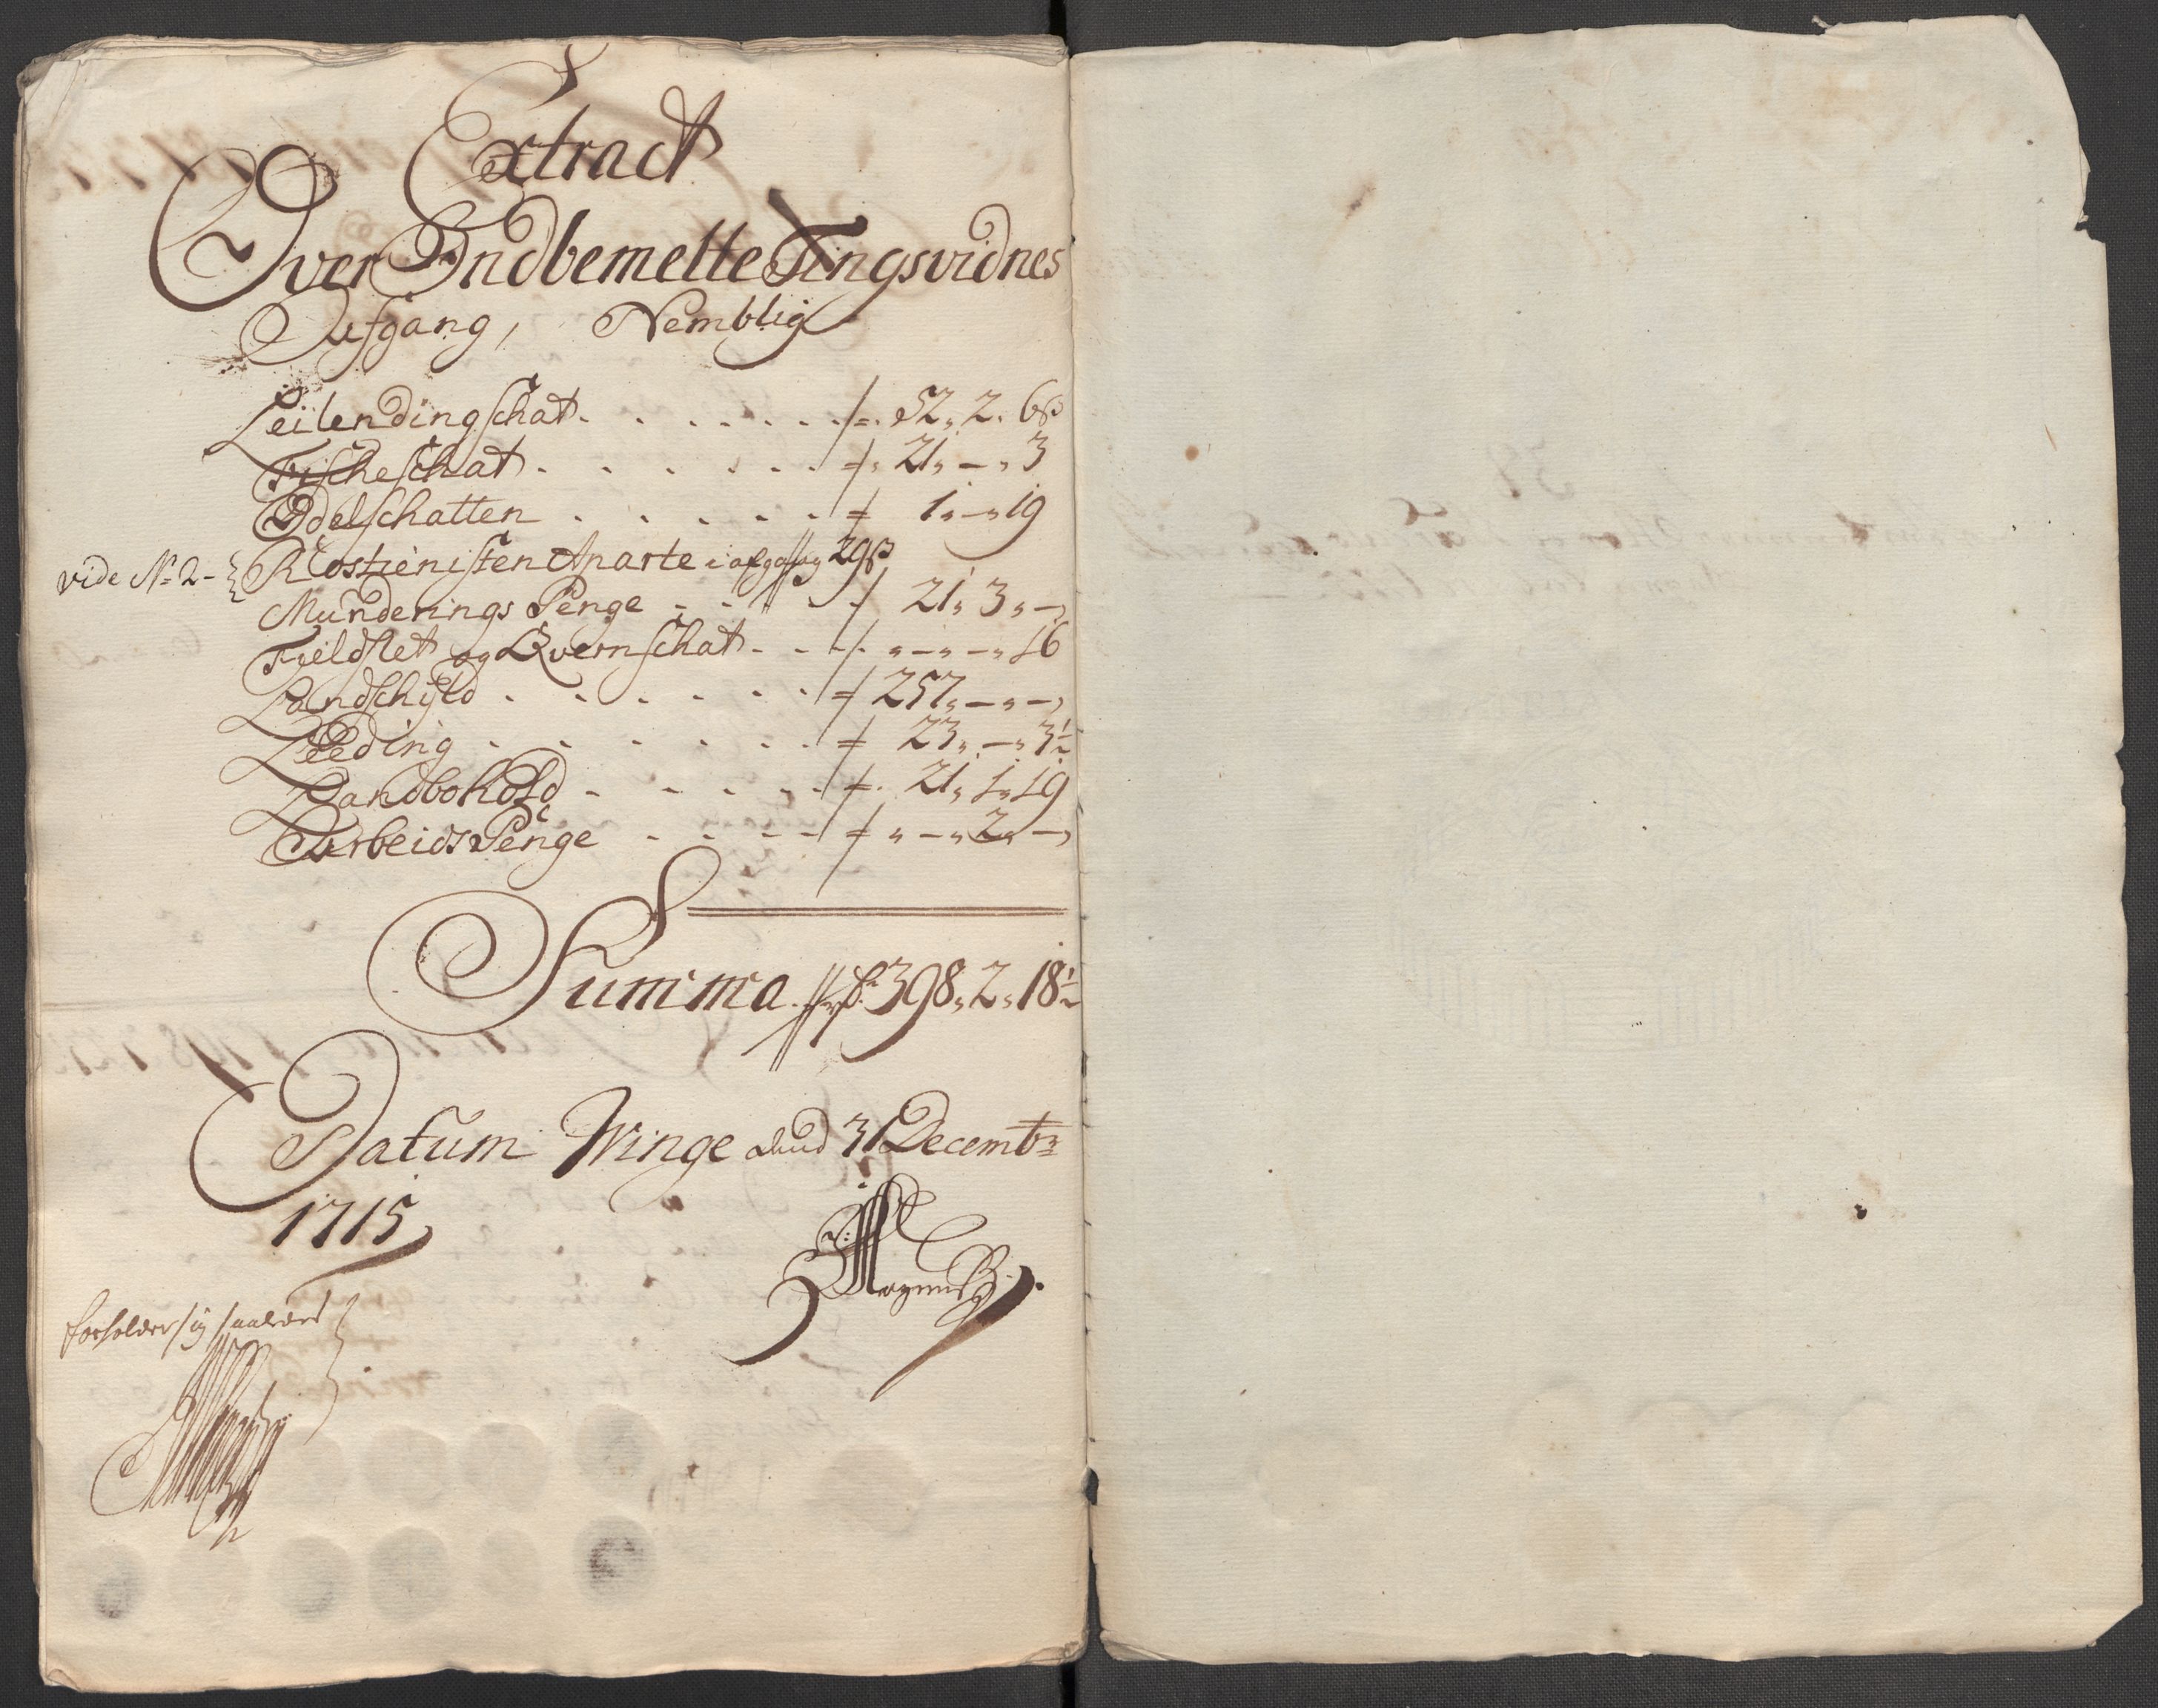 Extract
Over Indbemelte Tingsvidnes
Aufgang, Nemblig
Leilendingschat . . . . . . . 52 " 2 . 6 ß
Fischeschat . . . . . . 21 " — " 3
Odelschatten . . . . . 1 " — " 19
vide No 2 - Rostienisten Aparte i afgang 29 ß
Munderings Penge . . . . 21 " 3 " —
Fieldslet og Qvernschat . . . " — " — " 16
Landschyld . . . . . . 257 " — " —
Leeding . . . . . . 23 " — " 3½
Landbohold . . . . . 21 " 1 " 19
Arbeids Penge . . . . " — " 2 " —
Summa 398 " 2 " 18½
Datum Winge dend 31 Decembr
1715
forholder sig saaledes